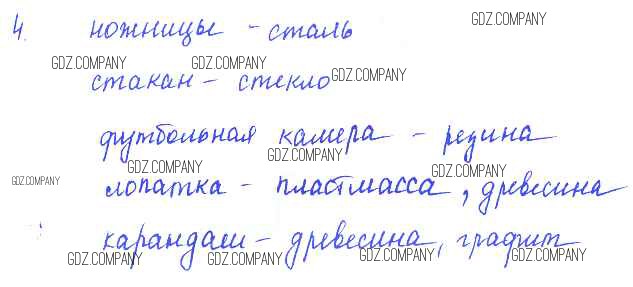 4. ножницы - сталь
стакан - стекло
футбольная камера - резина
лопатка - пластмасса, древесина
карандаш - древесина, графит
GDZ.COMPANY
GDZ.COMPANY
GDZ.COMPANY
GDZ.COMPANY
GDZ.COMPANY
GDZ.COMPANY
GDZ.COMPANY
GDZ.COMPANY
GDZ.COMPANY
GDZ.COMPANY
GDZ.COMPANY
GDZ.COMPANY